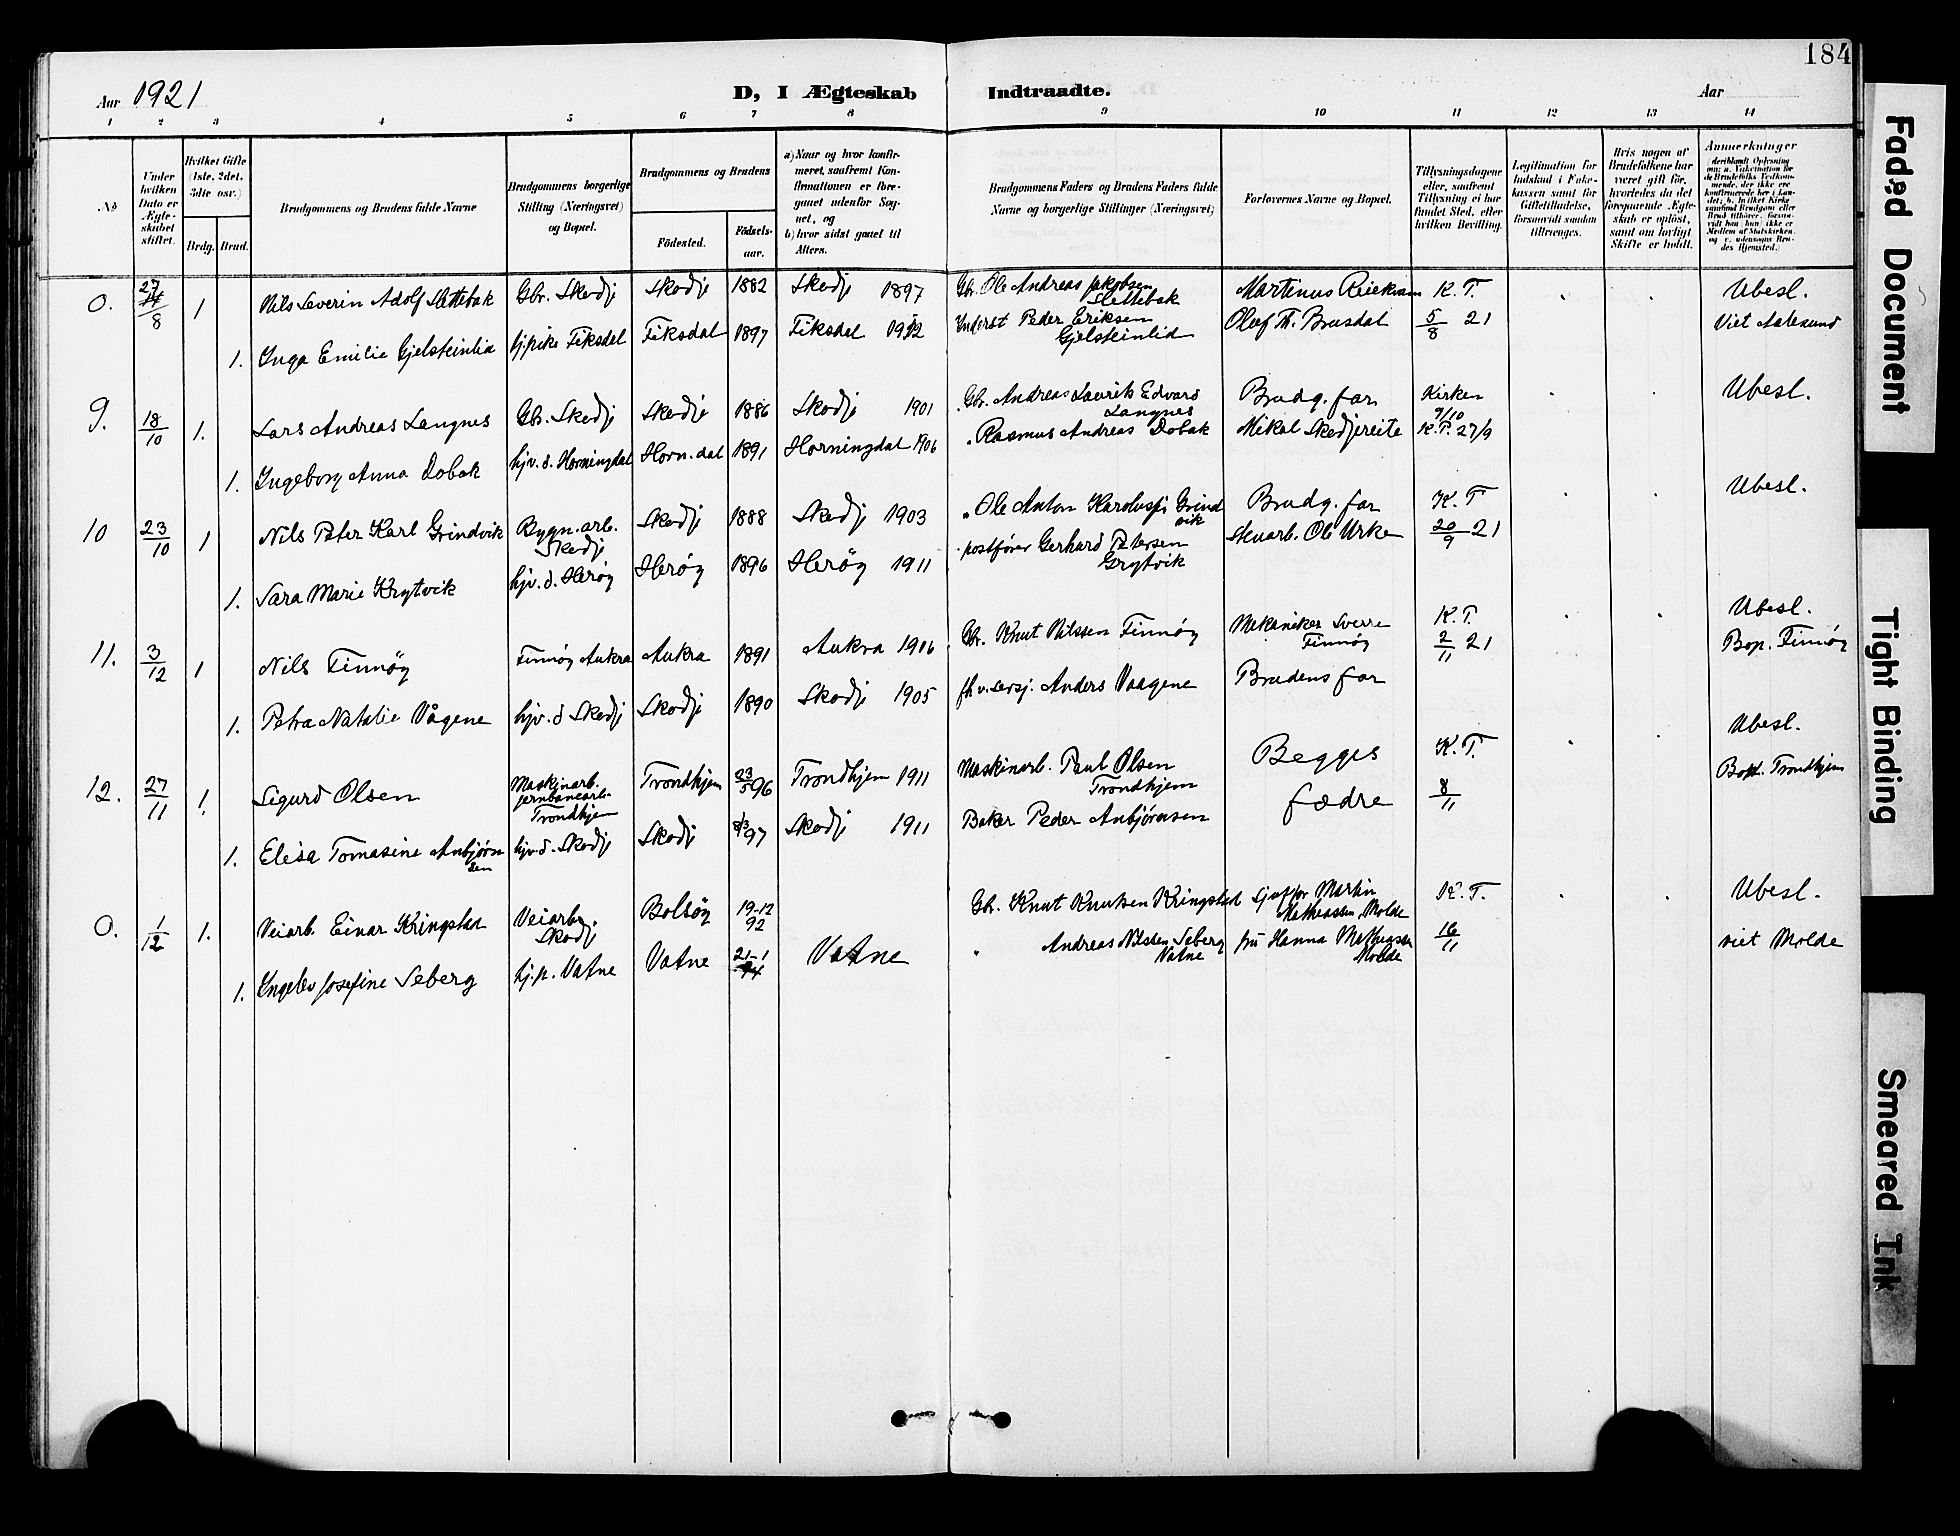 184
Aar 1921
D, I Ægteskab Indtraadte.
Aar
1 2 3 4 5 6 7 8 9 10 11 12 13 14
No
Under hvilken Dato er Ægteskabet stiftet.
Hvilket Gifte (1ste, 2det, 3die osv.)
Brdg. Brud.
Brudgommens og Brudens fulde Navne
Brudgommens borgerlige Stilling (Næringsvei) og Bopæl.
Brudgommens og Brudens
Födested. Födselsaar.
a) Naar og hvor konfirmeret, saafremt Konfirmationen er foregaaet udenfor Sognet, og
b) hvor sidst gaaet til Alters.
Brudgommens Faders og Brudens Faders fulde Navne og borgerlige Stillinger (Næringsvei)
Forlovernes Navne og Bopæl.
Tillysningsdagene eller, saafremt Tillysning ei har fundet Sted, efter hvilken Bevilling.
Legitimation for Indskud i Enkekassen samt for Giftetilladelse, forsaavidt saadan tiltrænges.
Hvis nogen af Brudefolkene har været gift før, hvorledes da det foregaaende Ægteskab er opløst, samt om lovligt Skifte er holdt.
Anmerkninger
0. 27/8 1 Nils Severin Adolf Slettebak Gbr. Skodj Skodj 1882 Skodj 1897 Gbr. Ole Andreas Jakobsen Slettebak Martinus K. T. Ubesl.
1. Inga Emilie Gjelsteinlid hj.pike Fiksdal Fiksdal 1897 Fiksdal 1912 Inderst Peder Eriksen Gjelsteinlid Olaf Th. Brusdal 5/8 21 Viet Aalesund
9. 18/10 1. Lars Andreas Langnes Gbr. Skodj Skodje 1886 Skodje 1901 Gbr. Andreas Lavrik Edvard Langnes Brudg. far Kirken 9/10 Ubesl.
1. Ingeborg Anna Dobak hjv. d. Horningdal Horn.dal 1891 Horningdal 1906 " Rasmus Andreas Dobak Mikal Skodjereite K.T. 27/9
10 23/10 1 Nils Peter Karl Grindvik Bygn.arb. Skodj Skodj 1888 Skodj 1903 " Ole Anton Grindvik Brudg. far K. T Ubesl.
1. Sara Marie Krytvik hjv. d. Herøy Herøy 1896 Herøy 1911 postfører Gerhard Petersen Grytvik Ole Urke 20/9 21
11. 3/12 1 Nils Finnøy Finnøy Aukra Aukra 1891 Aukra 1906 Gbr. Knut Nilssen Finnøy Mekaniker Sverre Finnøy K. T. 2/11 21 Ubesl. Bop. Finnøy
1. Petra Natalie Vågene hjv. d Skodj Skodj 1890 Skodj 1905 Anders Vaagene Brudens far
12. 27/11 1. Sigurd Olsen Maskinarb. jernbanearb. Trondhjem Trondhjem 23/5 96 Trondhjem 1911 Maskinarb. Paul Olsen Trondhjem Begges fædre K. T. 8/11 Ubesl. Bop. Trondhjem
1. Elisa Tomasine Anbjørnsen hjv. d. Skodj Skodj 97 Skodj 1911 Baker Peder Anbjørnsen
0. 1/12 1. Veiarb. Einar Kringstad Veiarb. Skodj Bolsøy 19-12 92 Gbr. Knut Knutsen Kringstad Martin Matheassen, Molde K. T. Ubesl.
1. Ingelev Josefine Seberg hj.p. Vatne Vatne 21-1 94 Vatne " Andreas Nilssen Seberg Vatne fru Hanna Molde 16/11 viet Molde
Faded Document
Tight Binding
Smeared Ink